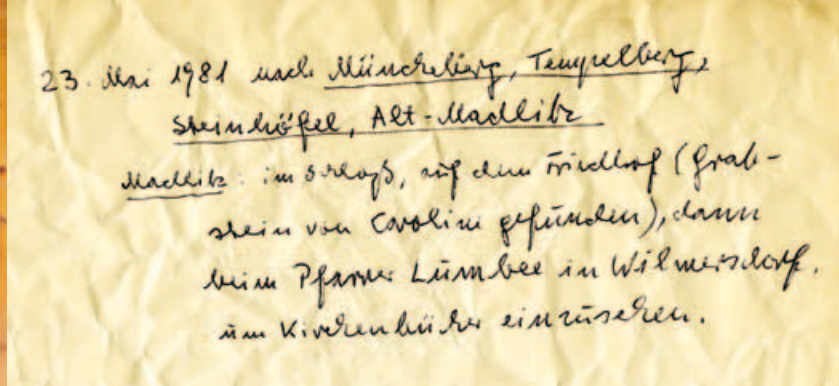 23. Mai 1981 nach Müncheberg, Tempelberg,
Steinhöfel, Alt-Madlitz
Madlitz: im Schloß, auf dem Friedhof (Grab-
stein von Caroline gefunden), dann
beim Pfarrer Lümbee in Wilmersdorf,
um Kirchenbücher einzusehen.